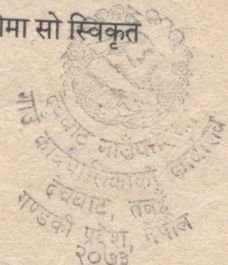 ीमा सो स्विकृत
देवघाट गाउँपालिका
गाउँ कार्यपालिकाको कार्यालय
देवघाट, तनहुँ
गण्डकी प्रदेश, नेपाल
२०७३